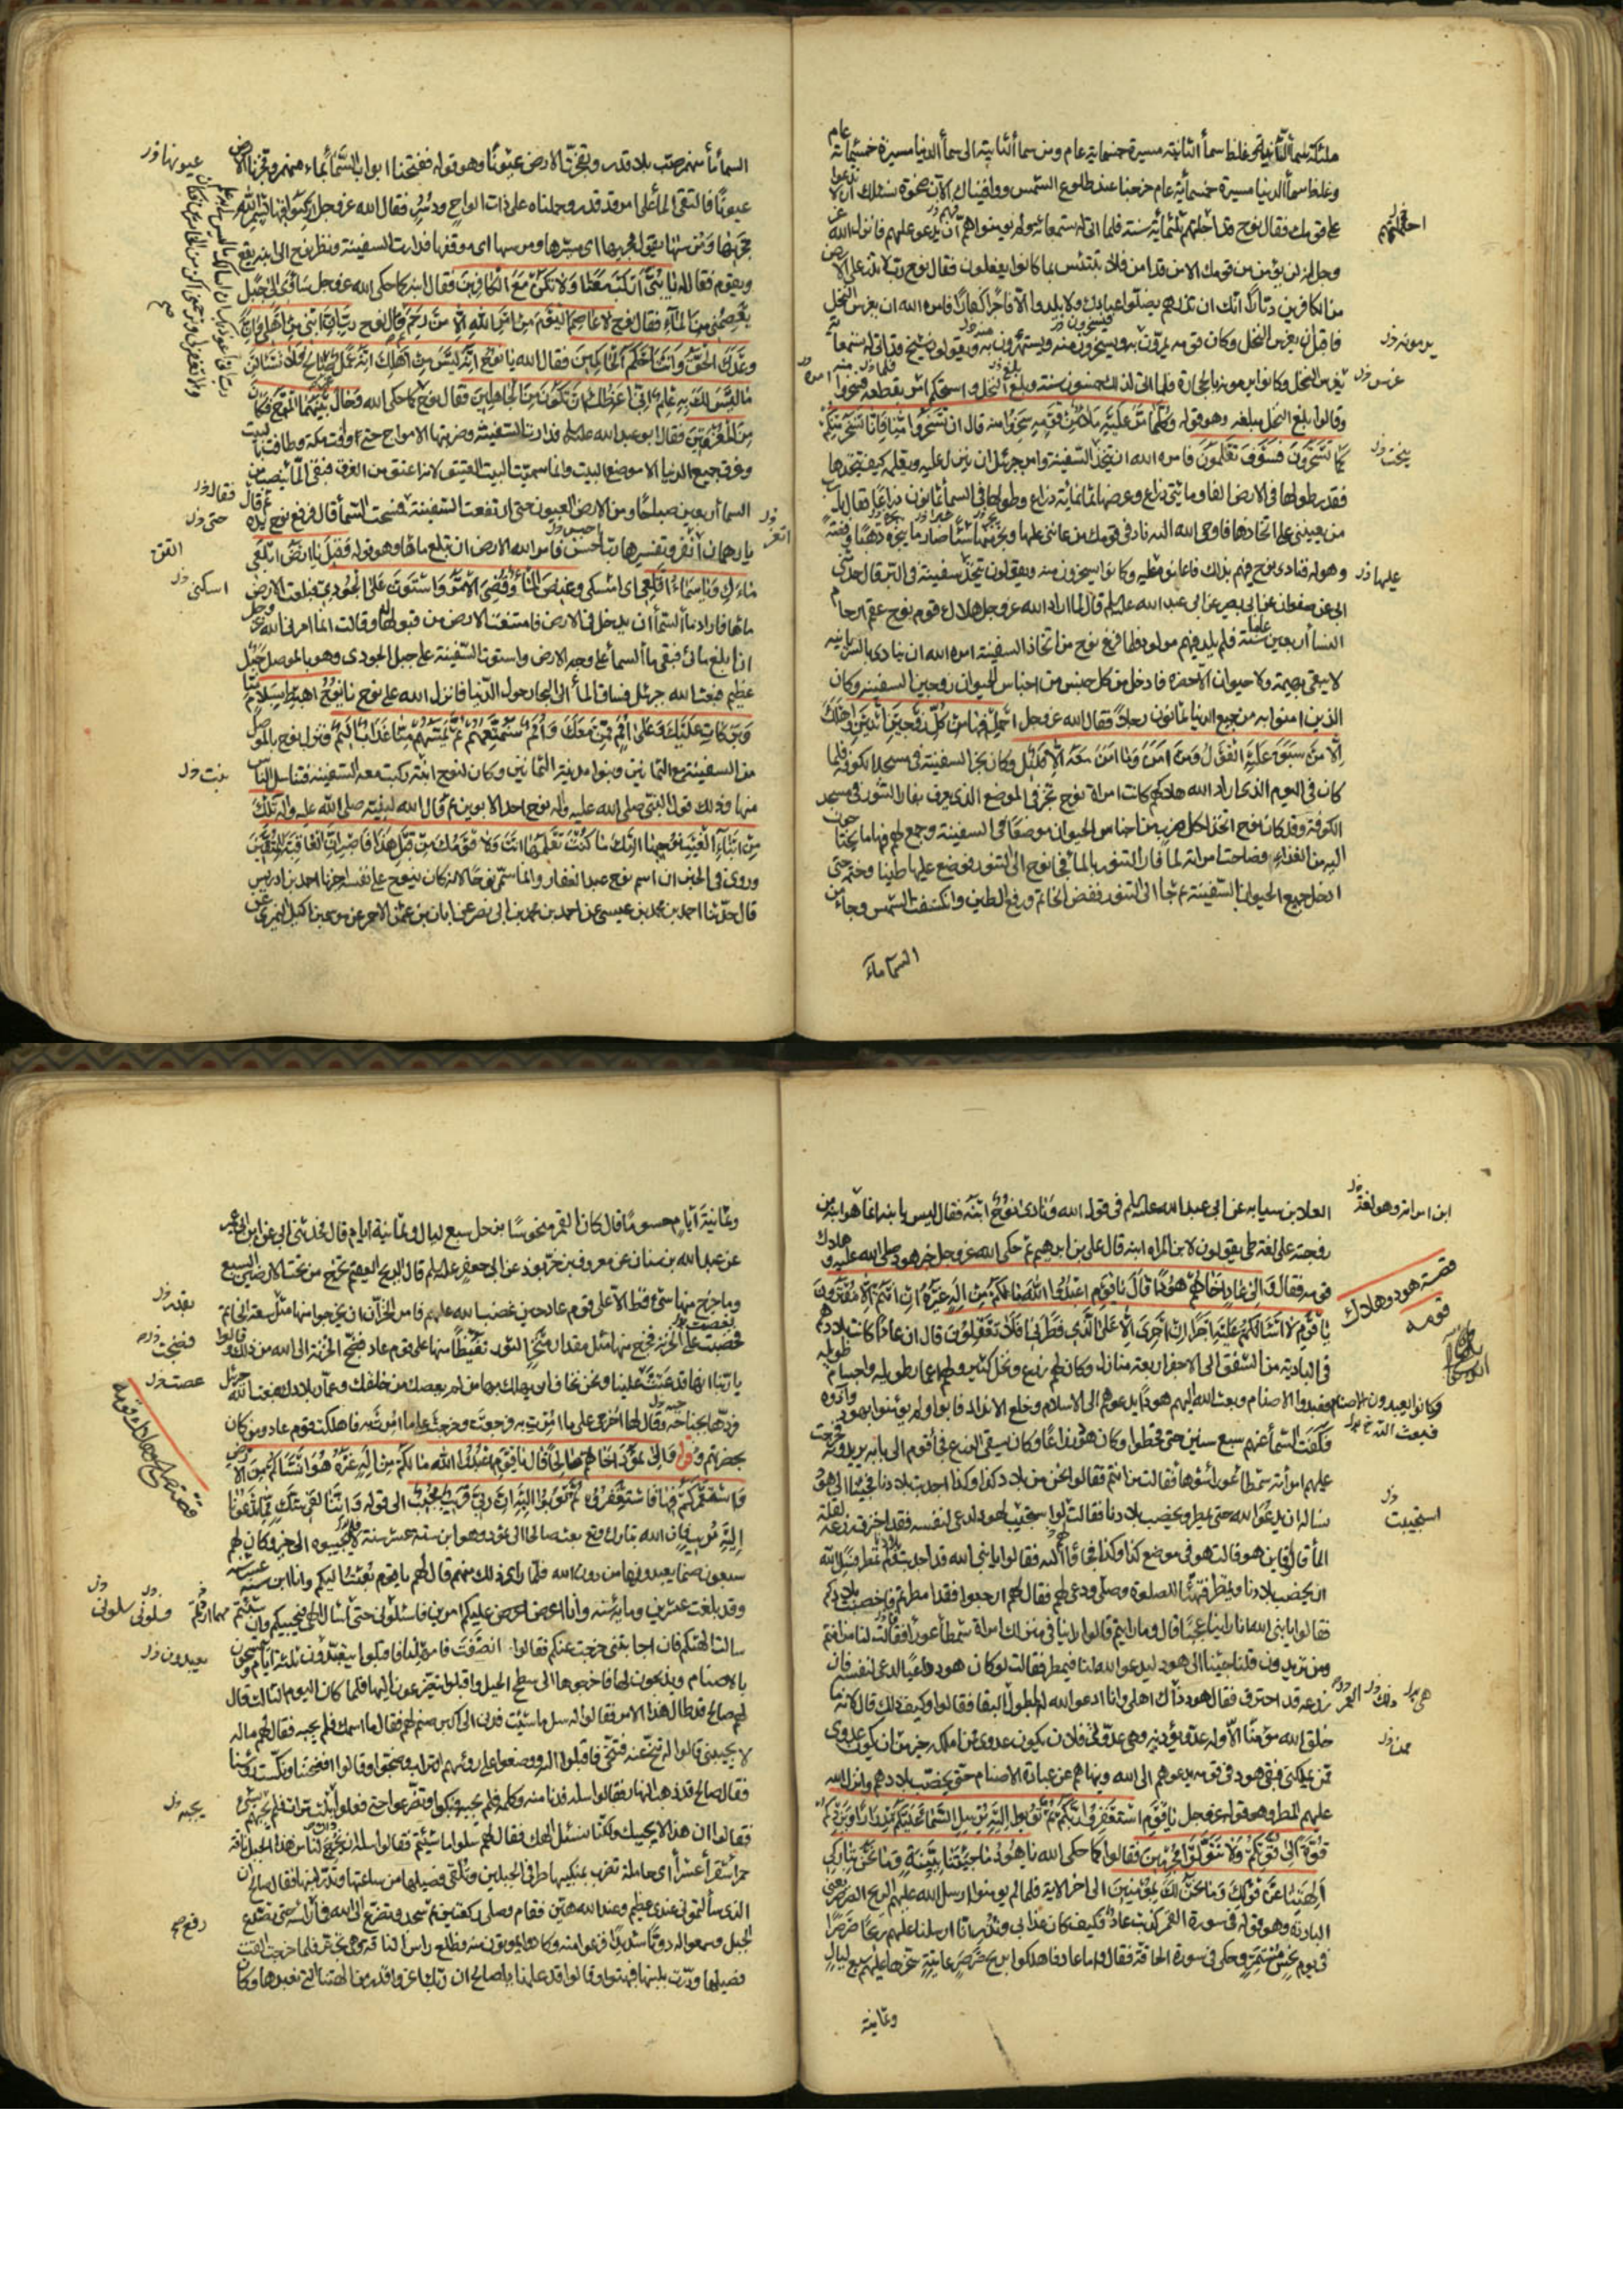 ملئكة سماء الثانية وغلظ سماء الثانية مسيرة خمسمائة عام ومن سماء الثانية الى سماء الدنيا مسيرة خمسمائة عام
وغلظ سماء الدنيا مسيرة خمسمائة عام خرجنا عند طلوع الشمس ووافيناك الآن ضحوة نسئلك ان لا تدعوا
على قومك فقال نوح قد اجلتهم ثلثمائة سنة فلما اتى له ستمائة ولم يؤمنوا هم ان يدعو عليهم فانزل الله عز
وجل انه لن يؤمن من قومك الا من قد امن فلا تبتئس بما كانوا يفعلون فقال نوح رب لا تذر على الارض
من الكافرين ديارا انك ان تذرهم يضلوا عبادك ولا يلدوا الا فاجرا كفارا فامره الله ان يغرس النخل
فاقبل يغرس النخل وكان قومه يمرون به ويسخرون منه ويستهزؤن به ويقولون شيخ قد اتى له تسعمائة
يغرس النخل وكانوا يرمونه بالحجارة فلما اتى لذلك خمسون سنة وبلغ النخل واستحكم امر بقطعه فسخروا
وقالوا بلغ النخل مبلغه وهو قوله وكلما مر عليه ملأ من قومه سخروا منه قال ان تسخروا منا فانا نسخر منكم
كما تسخرون فسوف تعلمون فامره الله ان يتخذ السفينة وامر جبرئيل ان ينزل عليه ويعلمه كيف يتخذها
فقدر طولها في الارض الفا ومائتي ذراع وعرضها ثمانمائة ذراع وطولها في السماء ثمانون ذراعا فقال يا رب
من يعينني على اتخاذها فاوحى الله اليه ناد في قومك من عانني عليها ونجر منها شيئا صار ما ينجره ذهبا وفضة
فنادى نوح فيهم بذلك فاعانوه عليه وكانوا يسخرون منه ويقولون يتخذ سفينة في البر قال حدثني
ابي عن صفوان عن ابي بصير عن ابي عبد الله عليه السلم قال لما اراد الله عز وجل هلاك قوم نوح عقم ارحام
النساء اربعين سنة فلم يلد فيهم مولود فلما فرغ نوح من اتخاذ السفينة امره الله ان ينادي بالسريانية
لا يبقى بهيمة ولا حيوان الا حضر فادخل من كل جنس من اجناس الحيوان زوجين السفينة وكان
الذين امنوا به من جميع الدنيا ثمانون رجلا فقال الله عز وجل احمل فيها من كل زوجين اثنين واهلك
الا من سبق عليه القول ومن امن وما امن معه الا قليل وكان نجر السفينة في مسجد الكوفة فلما
كان في اليوم الذي اراد الله هلاكهم كانت امراة نوح تخبز في الموضع الذي يعرف بفار التنور في مسجد
الكوفة وقد كان نوح اتخذ لكل ضرب من اجناس الحيوان موضعا في السفينة وجمع لهم فيها ما يحتاجون
اليه من الغذاء وصاحت امراته لما فار التنور بالماء فجاء نوح الى التنور فوضع عليها طينا وختمه حتى
ادخل جميع الحيوان السفينة ثم جاء الى التنور ففض الخاتم ورفع الطين وانكسفت الشمس وجاء من
السماء ماء
السماء ماء منهمر صب بلا قدر وتفجرت الارض عيونا وهو قوله ففتحنا ابواب السماء بماء منهمر وفجرنا الارض
عيونا فالتقى الماء على امر قد قدر وحملناه على ذات الواح ودسر فقال الله عز وجل اركبوا فيها بسم الله
مجريها ومرسيها يقول مجريها اي مسيرها ومرسيها اي موقفها فدارت السفينة ونظر نوح الى ابنه يقع
ويقوم فقال له يا بني اركب معنا ولا تكن مع الكافرين فقال ابنه كما حكى الله عز وجل ساوي الى جبل
يعصمني من الماء فقال نوح لا عاصم اليوم من امر الله الا من رحم ثم قال نوح رب ان ابني من اهلي وان
وعدك الحق وانت احكم الحاكمين فقال الله يا نوح انه ليس من اهلك انه عمل غير صالح فلا تسئلن
ما ليس لك به علم اني اعظك ان تكون من الجاهلين فقال نوح كما حكى الله فحال بينهما الموج فكان
من المغرقين فقال ابو عبد الله عليه السلم فدارت السفينة وضربتها الامواج حتى وافت مكة وطافت بالبيت
وغرق جميع الدنيا الا موضع البيت وانما سميت البيت العتيق لانه اعتق من الغرق فبقى الماء ينصب من
السماء اربعين صباحا ومن الارض العيون حتى ارتفعت السفينة فمسحت السماء قال فرفع نوح يده ثم قال
يا رهمان اتقن وتفسيرها رب احسن فامر الله الارض ان تبلع ماءها وهو قوله وقيل يا ارض ابلعي
ماءك ويا سماء اقلعي اي امسكي وغيض الماء وقضي الامر واستوت على الجودي فبلعت الارض
ماءها فاراد ماء السماء ان يدخل في الارض فامتنعت الارض من قبولها وقالت انما امرني الله عز وجل
ان ابلع مائي فبقى ماء السماء على وجه الارض واستوت السفينة على جبل الجودي وهو بالموصل جبل
عظيم فبعث الله جبرئيل فساق الماء الى البحار حول الدنيا فانزل الله على نوح يا نوح اهبط بسلام منا
وبركات عليك وعلى امم ممن معك وامم سنمتعهم ثم يمسهم منا عذاب اليم فنزل نوح بالموصل
من السفينة مع الثمانين وبنوا مدينة الثمانين وكان لنوح ابنة ركبت معه السفينة فتناسل الناس
منها وذلك قول النبي صلى الله عليه واله نوح احد الابوين ثم قال الله لنبيه صلى الله عليه واله تلك
من انباء الغيب نوحيها اليك ما كنت تعلمها انت ولا قومك من قبل هذا فاصبر ان العاقبة للمتقين
وروى في الخبر ان اسم نوح عبد الغفار وانما سمي نوحا لانه كان ينوح على نفسه اخبرنا احمد بن ادريس
قال حدثنا احمد بن محمد بن عيسى عن احمد بن محمد بن ابي نصر عن ابان بن عثمن الاحمر عن موسى بن اكيل النميري عن
العلا بن سيابه عن ابي عبد الله عليه السلم في قوله الله ونادى نوح ابنه فقال ليس بابنه انما هو ابنه من
زوجته على لغة طي يقولون لابن المراه ابنه قال علي بن ابرهيم ثم حكى الله عز وجل خبر هود صلى الله عليه وهلاك
قومه فقال والى عاد اخاهم هودا قال يا قوم اعبدوا الله ما لكم من اله غيره ان انتم الا مفترون
يا قوم لا اسئلكم عليه اجرا ان اجري الا على الذي فطرني افلا تعقلون قال ان عادا كانت بلادهم
في البادية من الشقوق الى الاجفر اربعة منازل وكان لهم زرع ونخل كثير ولهم اعمار طويلة واجسام طويلة
فعبدوا الاصنام وبعث الله اليهم هودا يدعوهم الى الاسلام وخلع الانداد فابوا ولم يؤمنوا بهود واذوه
فكفت السماء عنهم سبع سنين حتى قحطوا وكان هود زراعا وكان يسقي الزرع فجاء قوم الى بابه يريدونه فخرجت
عليهم امراته شمطاء عوراء فقالت من انتم فقالوا نحن من بلاد كذا وكذا اجدبت بلادنا فجئنا الى هود
نساله ان يدعو الله حتى يمطر ويخصب بلادنا فقالت لو استجيب لهود لدعى لنفسه فقد احترق زرعه لقلة
الماء قالوا فاين هو قالت هو في موضع كذا وكذا فجاءوا اليه فقالوا يا نبي الله قد اجدبت بلادنا ولم تمطر فسل الله
ان يخصب بلادنا وتمطر فتهيأ للصلوة وصلى ودعى لهم فقال لهم ارجعوا فقد امطرتم فاخصبت بلادكم
فقالوا يا نبي الله انا راينا عجبا قال وما رايتم قالوا راينا في منزلك امراة شمطاء عوراء فقالت لنا من انتم
ومن تريدون قلنا جئنا الى هود ليدعو الله لنا فيمطر فقالت لو كان هود داعيا لدعى لنفسه فان
زرعه قد احترق فقال هود ذاك اهلي وانا ادعو الله لها بطول البقا فقالوا وكيف ذلك قال لانه ما
خلق الله مؤمنا الا وله عدو يؤذيه وهي عدوتي فلان يكون عدوي ممن املكه خير من ان يكون عدوي
ممن يملكني فبقى هود في قومه يدعوهم الى الله وينهاهم عن عبادة الاصنام حتى تخصب بلادهم وانزل الله
عليهم المطر وهو قوله عز وجل يا قوم استغفروا ربكم ثم توبوا اليه يرسل السماء عليكم مدرارا ويزدكم
قوة الى قوتكم ولا تتولوا مجرمين فقالوا كما حكى الله يا هود ما جئتنا ببينة وما نحن بتاركي
الهتنا عن قولك وما نحن لك بمؤمنين الى اخر الاية فلما لم يؤمنوا ارسل الله عليهم الريح الصرصر يعني
الباردة وهو قوله في سورة القمر كذبت عاد فكيف كان عذابي ونذر انا ارسلنا عليهم ريحا صرصرا
في يوم نحس مستمر وحكى في سورة الحاقة فقال واما عاد فاهلكوا بريح صرصر عاتية سخرها عليهم سبع ليال
وثمانية
قصة هود وهلاك
قومه
وثمانية ايام حسوما قال كان القمر منحوسا بزحل سبع ليال وثمانية ايام قال فحدثني ابي عن ابن ابي عمير
عن عبد الله بن سنان عن معروف بن خربوذ عن ابي جعفر عليه السلم قال الريح العقيم تخرج من تحت الارضين السبع
وما خرج منها شيء قط الا على قوم عاد حين غضب الله عليهم فامر الخزان ان يخرجوا منها مثل سعة الخاتم
فعصت على الخزنة فخرج منها مثل مقدار منخر الثور تغيظا منها على قوم عاد فضج الخزنة الى الله من ذلك وقالوا
يا ربنا انها قد عتت علينا ونحن نخاف ان يهلك بها من لم يعصك من خلقك وعمار بلادك فبعث الله جبرئيل
فردها بجناحه وقال لها اخرجي على ما امرت به فرجعت وخرجت على ما امرت به فاهلكت قوم عاد ومن كان
بحضرتهم وقوله والى ثمود اخاهم صالحا قال يا قوم اعبدوا الله ما لكم من اله غيره هو انشاكم من الارض
واستعمركم فيها فاستغفروه ثم توبوا اليه ان ربي قريب مجيب الى قوله واننا لفي شك مما تدعونا
اليه مريب فان الله تبارك وتع بعث صالحا الى ثمود وهو ابن ستة عشر سنة لا يجيبوه الى خير وكان لهم
سبعون صنما يعبدونها من دون الله فلما راى ذلك منهم قال لهم يا قوم بعثت اليكم وانا ابن ستة عشر سنة
وقد بلغت عشرين ومائة سنة وانا اعرض عليكم امرين فاسئلوني حتى اسال الهي فيجيبكم وان شئتم
سالت الهتكم فان اجابتني خرجت عنكم فقالوا انصفت فامهلنا فاقبلوا يتعبدون ثلثة ايام ويتمسحون
بالاصنام ويذبحون لها فاخرجوها الى سفح الجبل واقبلوا يتضرعون اليها فلما كان اليوم الثالث قال
لهم صالح قد طال هذا الامر فقالوا له سل ما شئت فدنى الى اكبر صنم لهم فقال ما اسمك فلم يجبه فقال لهم ما له
لا يجيبني قالوا له تنح عنه فتنحى فاقبلوا اليه ووضعوا على رؤسهم التراب وضجوا وقالوا افضحتنا ونكست رؤسنا
فقال صالح قد ذهب النهار فقالوا سله فدنا منه وكلمه فلم يجبه فبكوا وتضرعوا حتى فعلوا ذلك ثلث مرات فلم يجبهم بشيء
فقالوا ان هذا لا يجيبك ولكنا نسئل الهك فقال لهم سلوا ما شئتم فقالوا سله ان يخرج لنا من هذا الجبل ناقة
حمراء شقراء عشراء اي حاملة تضرب بمنكبيها طرفي الجبلين وتلقي فصيلها من ساعتها وتدر لبنها فقال صالح ان
الذي سالتموني عندي عظيم وعند الله هين فقام وصلى ركعتين ثم سجد وتضرع الى الله فما رفع راسه حتى تصدع
الجبل وسمعوا له دويا شديدا فزعوا منه وكادوا ان يموتوا منه فطلع راس الناقة وهي تجتر فلما خرجت القت
فصيلها ودرت بلبنها فبهتوا وقالوا قد علمنا يا صالح ان ربك اعز واقدر من الهتنا التي نعبدها وكان